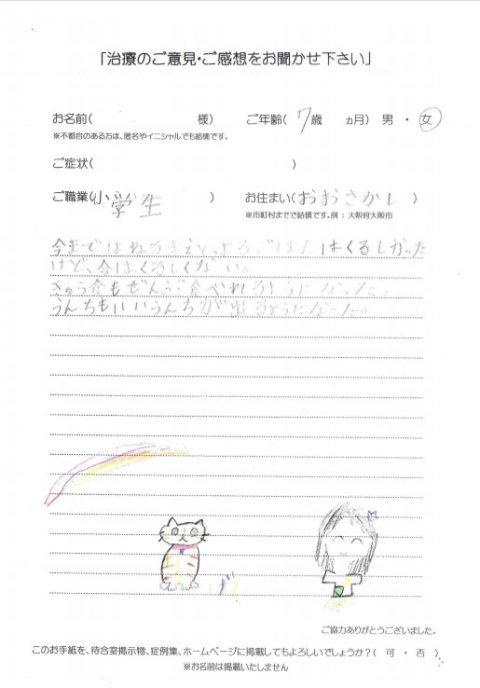 「治療のご意見・ご感想をお聞かせ下さい」
お名前( 様) ご年齢( 7歳 ヵ月) 男 ・ 女
※不都合のある方は、匿名やイニシャルでも結構です。
ご症状( )
ご職業( 小学生 ) お住まい( おおさかし )
※市町村までで結構です。例:大阪府大阪市
今まではねるまえと、よるごはんはくるしかった
けど、今はくるしくない。
きゅう食もぜんぶ食べれるようになった。
うんちもいいうんちが出るようになった。
ご協力ありがとうございました。
このお手紙を、待合室掲示物、症例集、ホームページに掲載してもよろしいでしょうか?( 可 ・ 否 )
※お名前は掲載いたしません